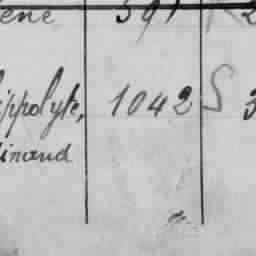 ène 591 2
ippolyte, 1042 S 3
inand